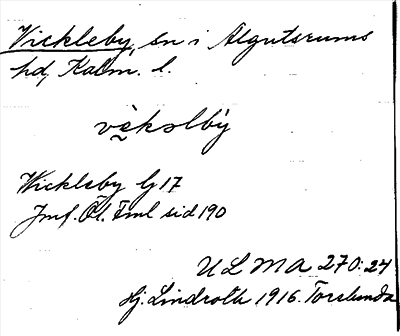 Vickleby, sn i Algutsrums
hd, Kalm. l.
vèkəlbý
Wickleby G 17
Jmf. Öl. Fml sid 190
ULMA 270:24
Hj. Lindroth 1916. Torslunda